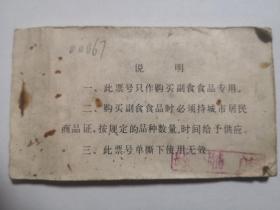 00067
说 明
一、此票号只作购买副食食品专用。
二、购买副食食品时必须持城市居民
商品证，按规定的品种数量，时间给予供应。
三、此票号单撕下使用无效。